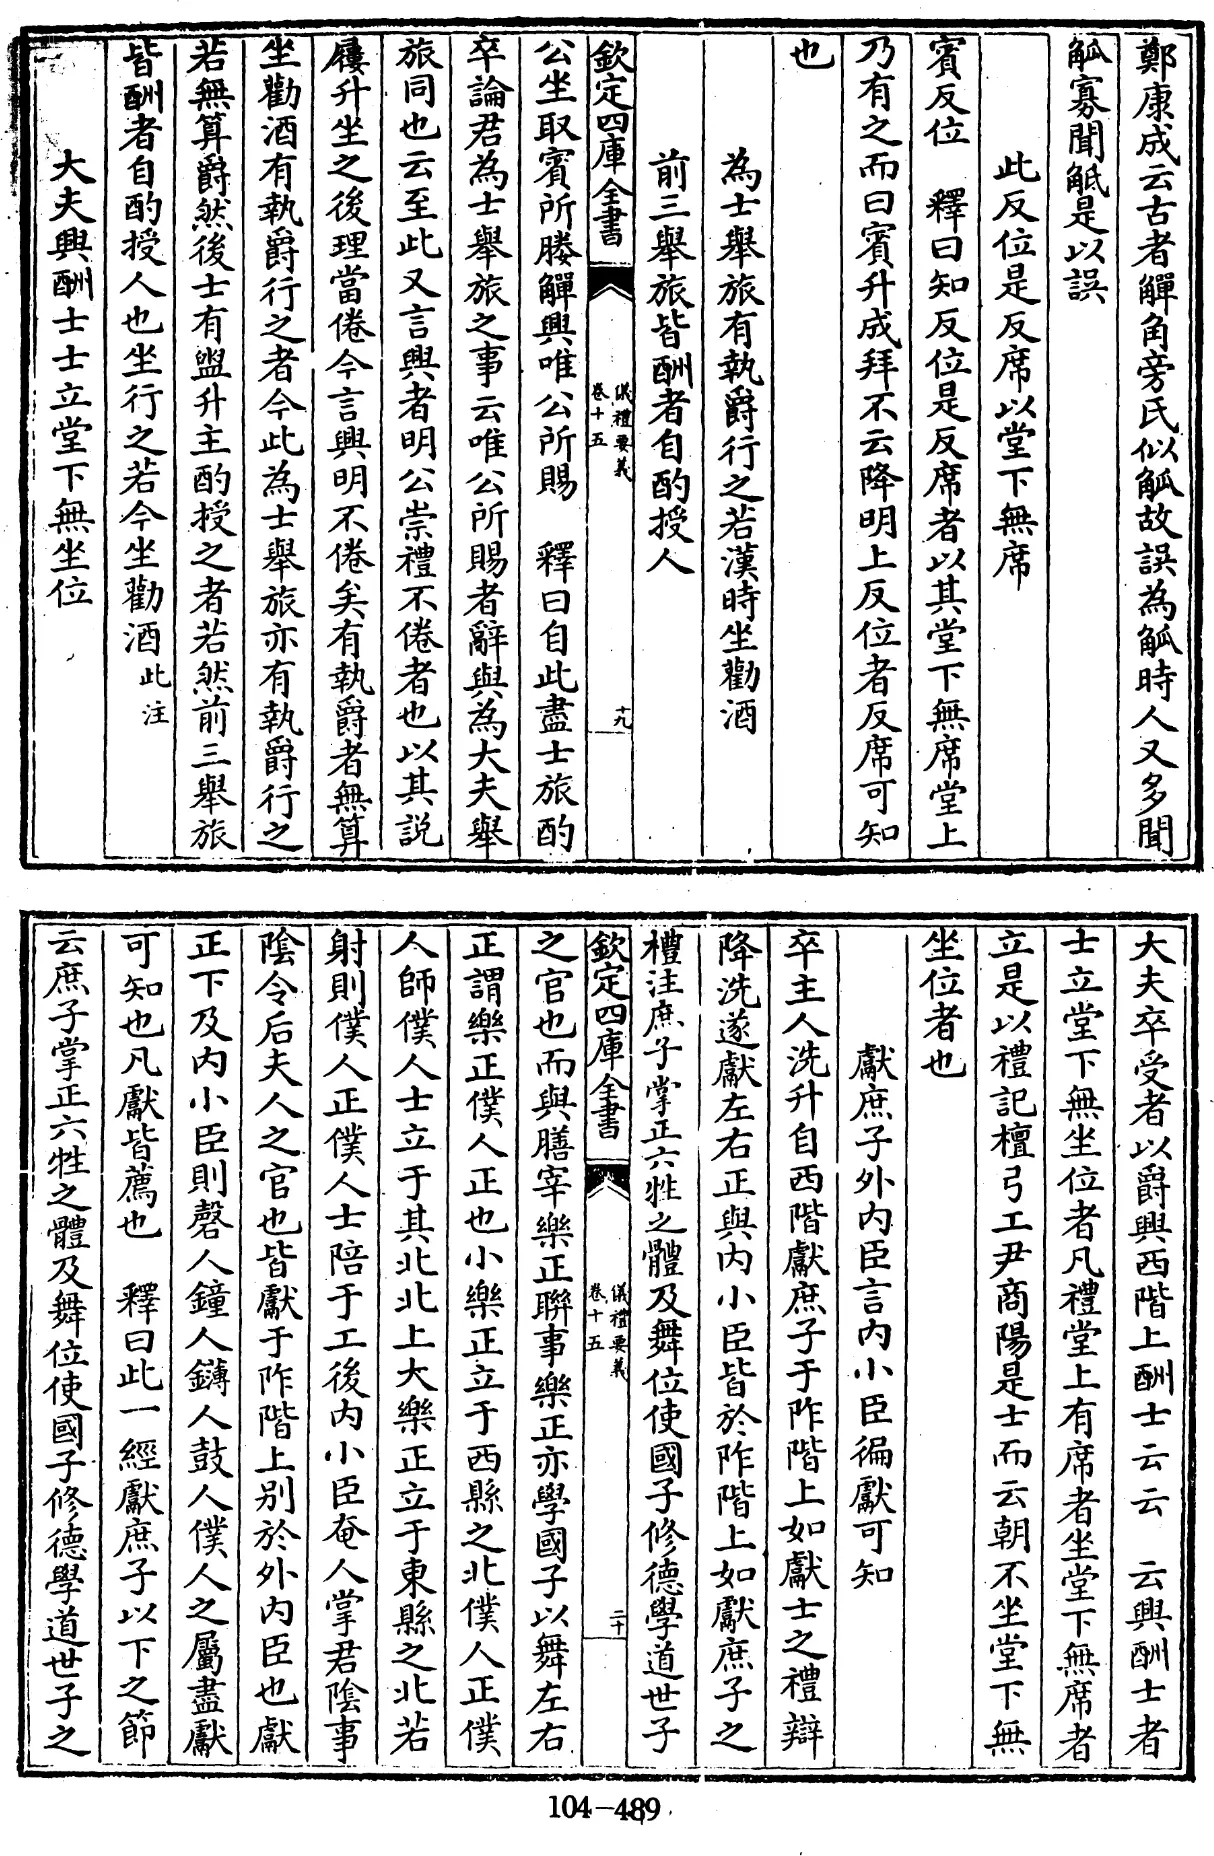 鄭康成云古者觶角旁氏似觚故誤為觚時人又多聞
觚寡聞觗是以誤
此反位是反席以堂下無席
賓反位　釋曰知反位是反席者以其堂下無席堂上
乃有之而曰賓升成拜不云降明上反位者反席可知
也
為士舉旅有執爵行之若漢時坐勸酒
前三舉旅皆酬者自酌授人
欽定四庫全書
儀禮要義
卷十五
十九
公坐取賓所媵觶興唯公所賜　釋曰自此盡士旅酌
卒論君為士舉旅之事云唯公所賜者辭與為大夫舉
旅同也云至此又言興者明公崇禮不倦者也以其說
屨升坐之後理當倦今言興明不倦矣有執爵者無算
坐勸酒有執爵行之者今此為士舉旅亦有執爵行之
若無算爵然後士有盥升主酌授之者若然前三舉旅
皆酬者自酌授人也坐行之若今坐勸酒此注
大夫興酬士士立堂下無坐位
大夫卒受者以爵興西階上酬士云云　云興酬士者
士立堂下無坐位者凡禮堂上有席者坐堂下無席者
立是以禮記檀弓工尹商陽是士而云朝不坐堂下無
坐位者也
獻庶子外內臣言內小臣徧獻可知
卒主人洗升自西階獻庶子于阼階上如獻士之禮辯
降洗遂獻左右正與內小臣皆於阼階上如獻庶子之
禮注庶子掌正六牲之體及舞位使國子修德學道世子
欽定四庫全書
儀禮要義
卷十五
二十
之官也而與膳宰樂正聯事樂正亦學國子以舞左右
正謂樂正僕人正也小樂正立于西縣之北僕人正僕
人師僕人士立于其北北上大樂正立于東縣之北若
射則僕人正僕人士陪于工後內小臣奄人掌君陰事
陰令后夫人之官也皆獻于阼階上別於外內臣也獻
正下及內小臣則磬人鐘人鏄人鼓人僕人之屬盡獻
可知也凡獻皆薦也　釋曰此一經獻庶子以下之節
云庶子掌正六牲之體及舞位使國子修德學道世子之
104-489